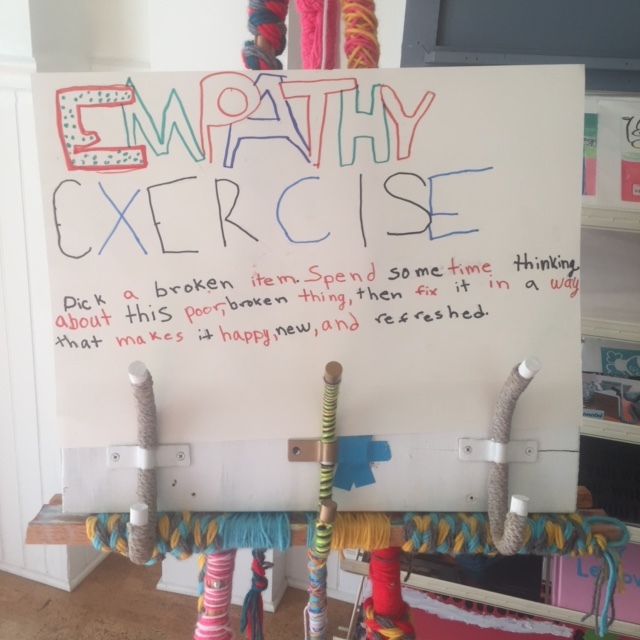 EMPATHY
EXERCISE
Pick a broken item. Spend some time thinking
about this poor, broken thing, then fix it in a way
that makes it happy, new, and refreshed.